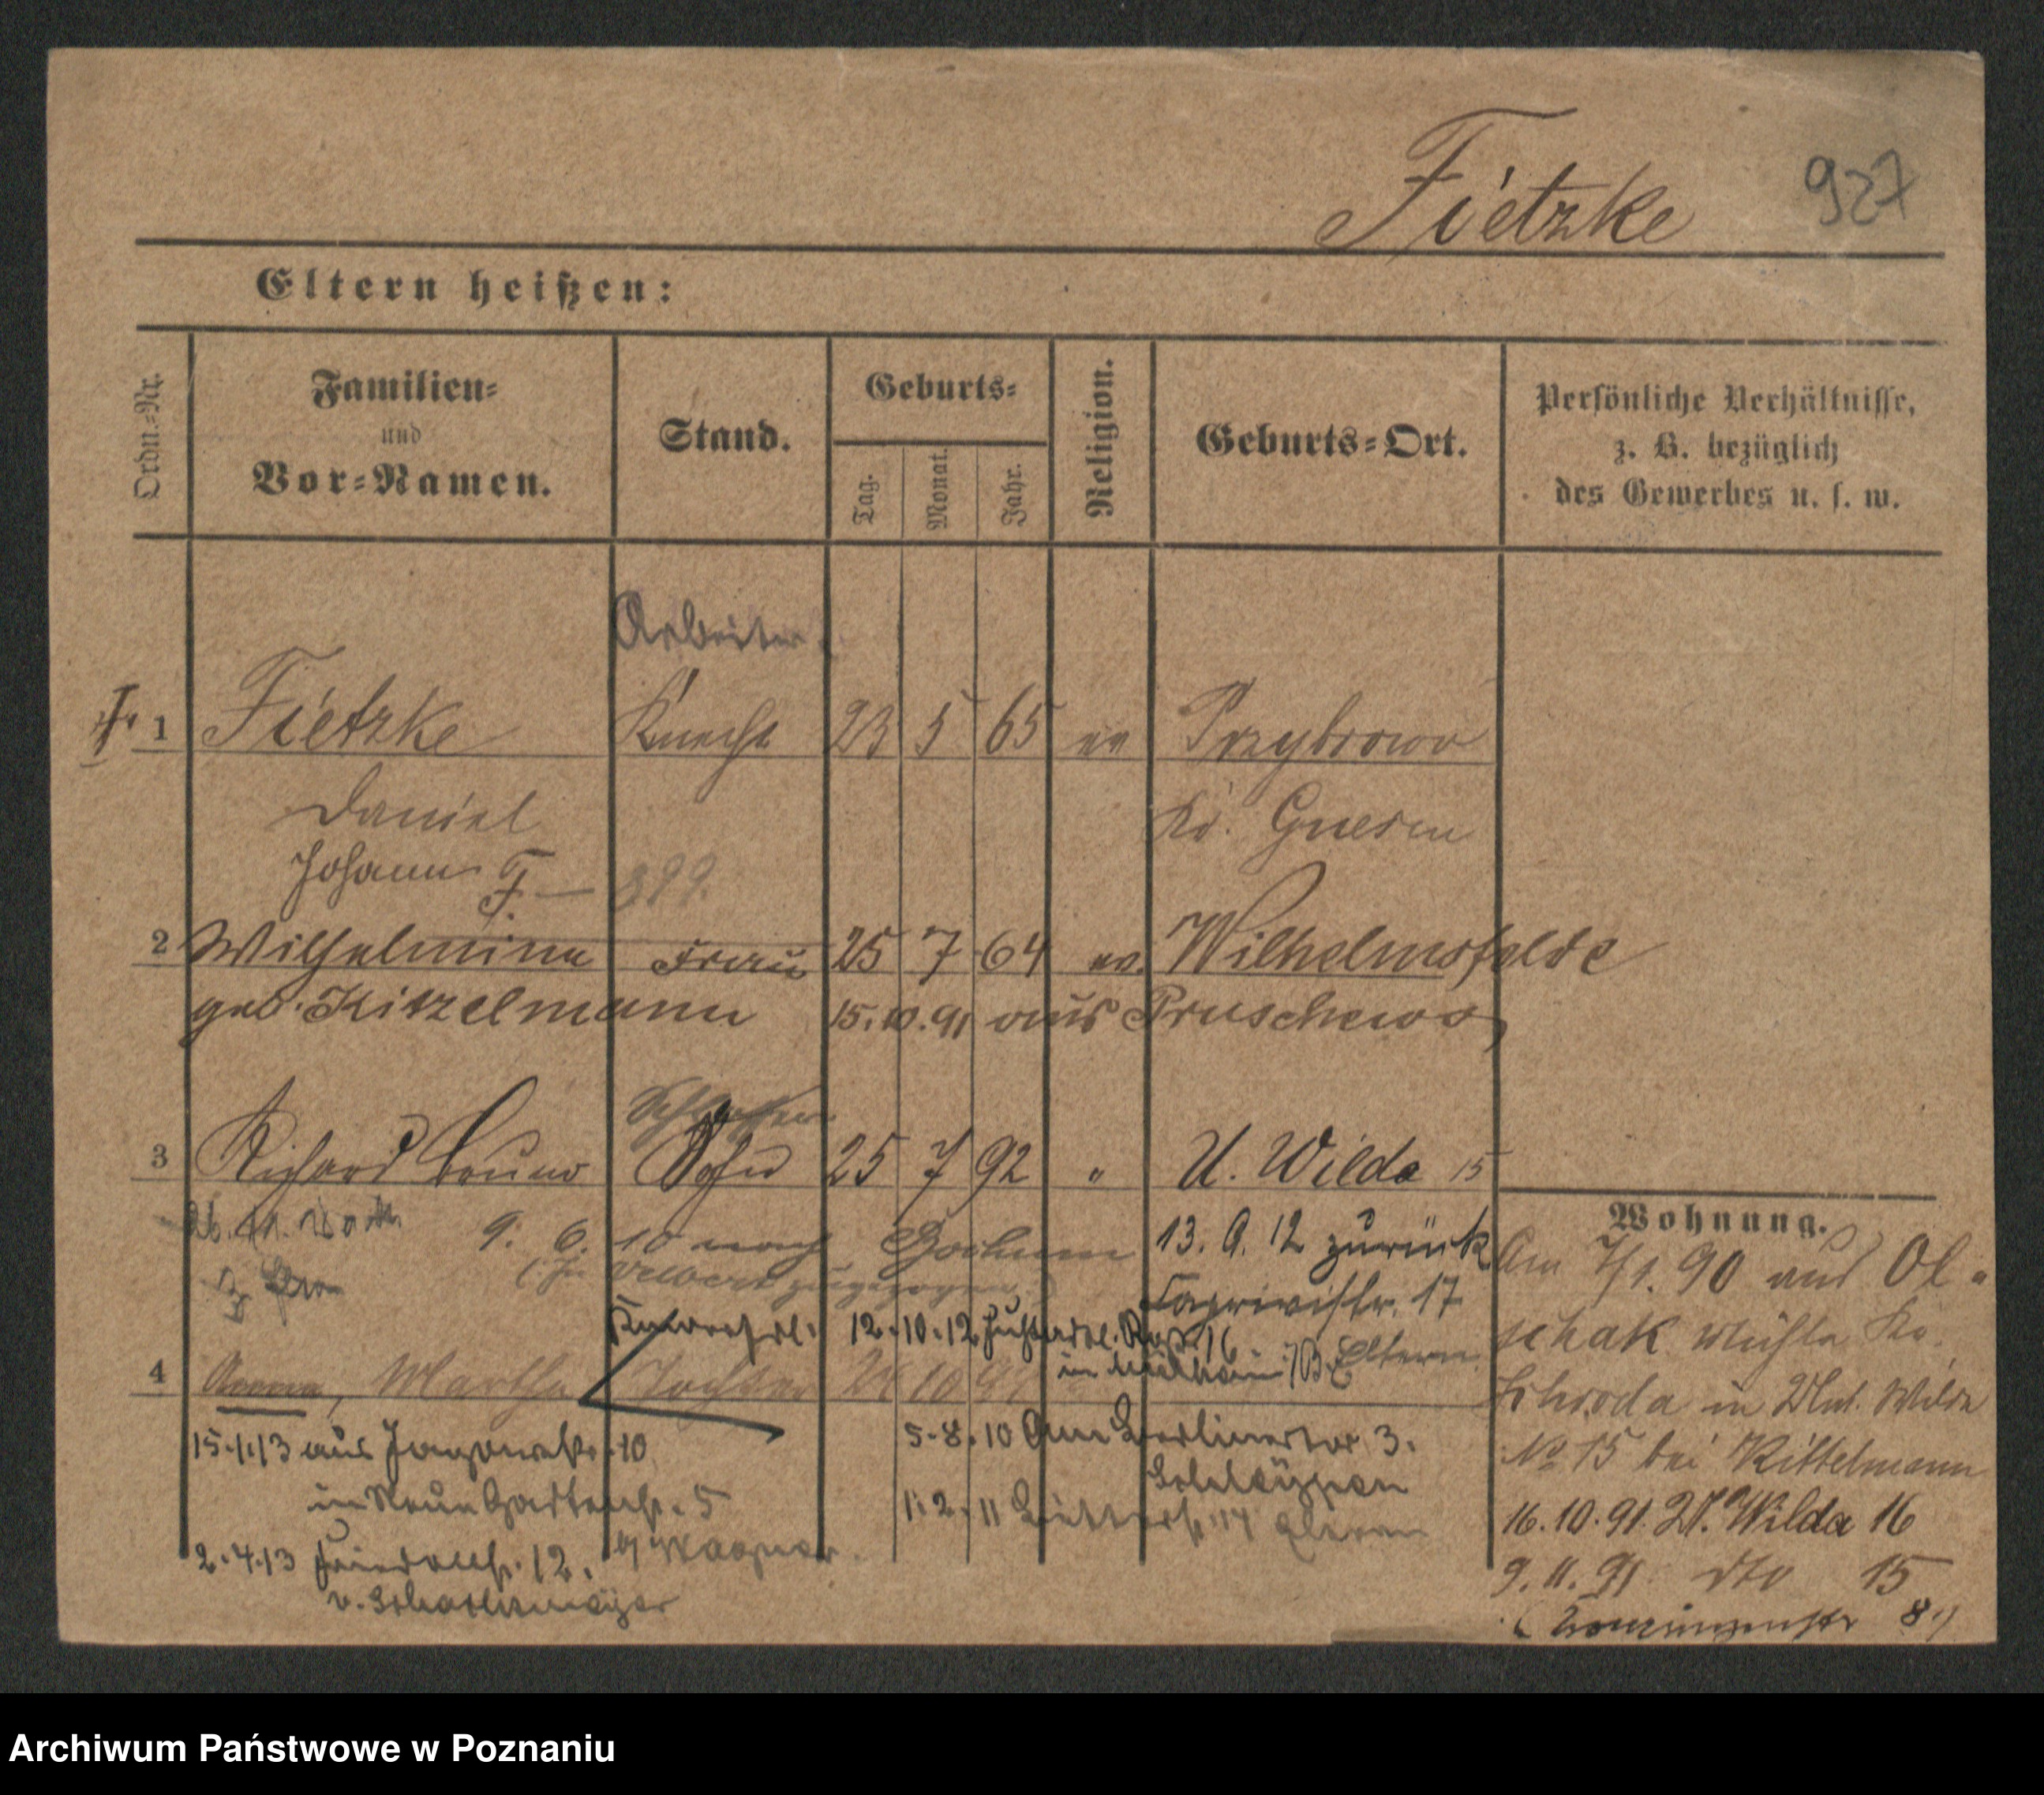 Fietzke 927
Eltern heißen:
Ordn.-Nr.
Familien-
und
Vor-Namen.
Stand.
Geburts-
Tag.
Monat.
Jahr.
Religion.
Geburts-Ort.
Persönliche Verhältnisse,
z. B. bezüglich
des Gewerbes u. s. w.
Arbeiter
1 Fietzke Knecht 23 5 65 ev Przybrowo
Daniel Kr. Gnesen
Johann F. — 399.
2 Wilhelmine Frau 25 7 64 ev. Wilhelmsfelde
geb. Kitzelmann 15.10.91 aus Pruschewo
Schlosser
3 Richard Bruno Sohn 25 7 92 " U. Wilda 15
9. 6. 10 nach Bochum 13. 9. 12 zurück
Velbert zugezogen
17
12.10.12 16
in Eltern
4 Anna, Martha Tochter 10
15.1.13 aus 10
in Neue Gartenstr. 5
2.4.13 12.
5.8.10 Am Berliner Tor 3.
1.2.11 14 Eltern
Wohnung.
Am 7/1. 90 aus Ol-
schak Mühle Kr.
Schroda in Unt. Wilda
No 15 bei Kittelmann
16.10.91. U. Wilda 16
9.11.91 dto 15
( 8.)
Archiwum Państwowe w Poznaniu